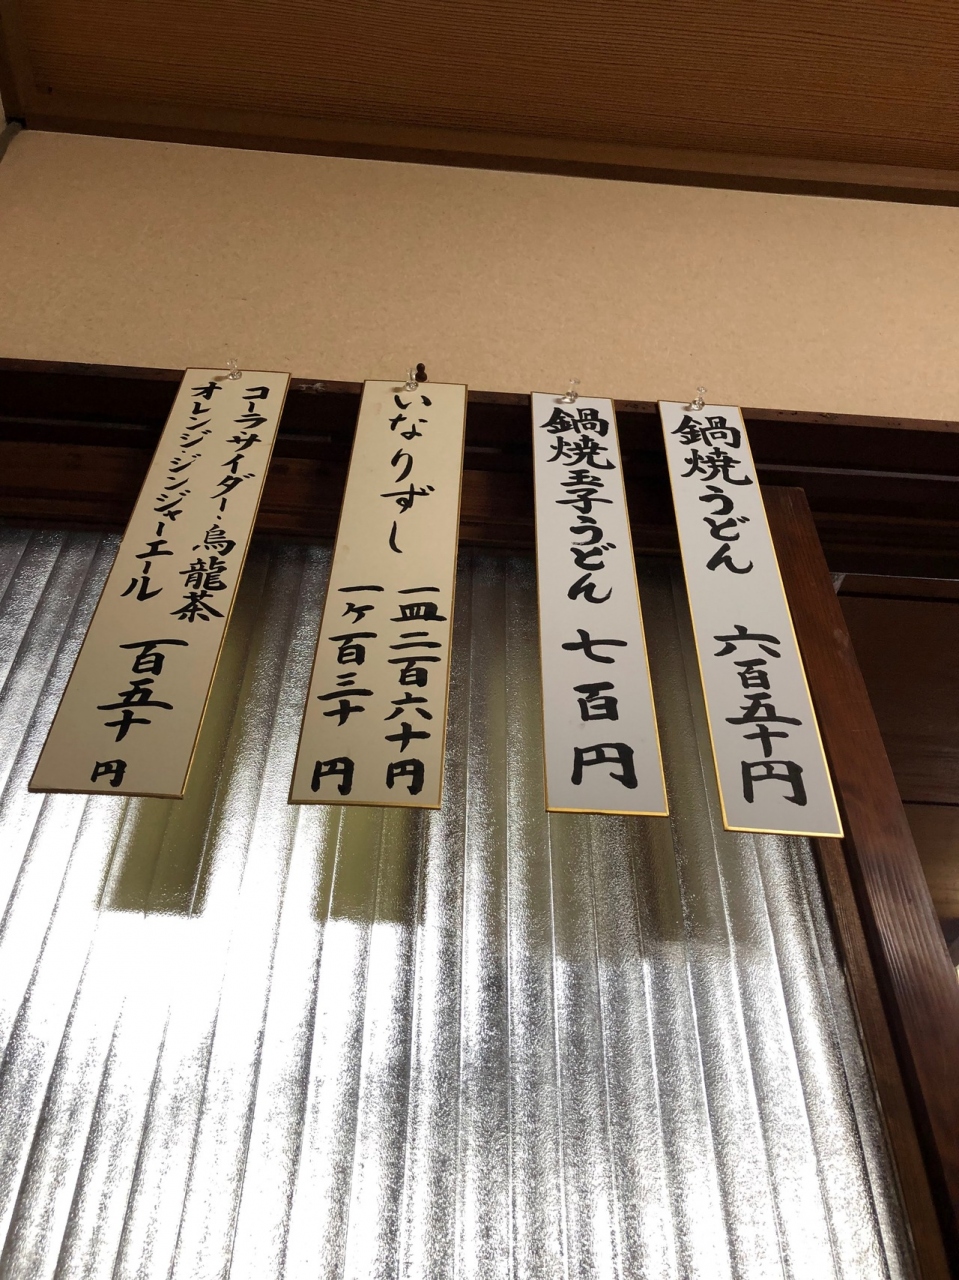 鍋焼うどん 六百五十円
鍋焼玉子うどん 七百円
いなりずし
一皿二百六十円
一ヶ百三十円
コーラサイダー・烏龍茶
オレンジ・ジンジャーエール
百五十円